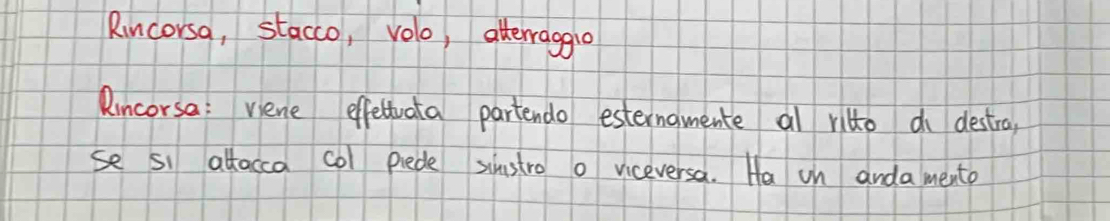 Rincorsa, stacco, volo, atterraggio
Rincorsa: viene effettuata partendo esternamente al ritto di destra,
se si attacca col piede sinistro o viceversa. Ha un andamento